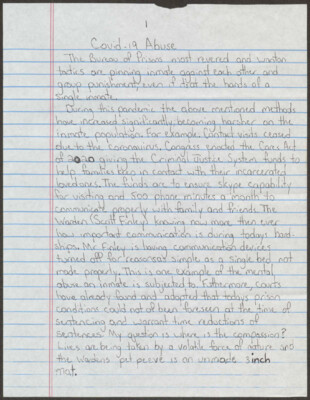 1
Covid-19 Abuse
The Bureau of Prisons most revered and wanton
tactics are pinning inmate against each other and
group punishment, even if that the hands of a
single inmate.
During this pandemic the above mentioned methods
have increased significantly, becoming harsher on the
inmate population. For example: Contact visits ceased
due to the Coronavirus. Congress enacted the Cares Act
of 2020 giving the Criminal Justice System funds to
help families keep in contact with their incarcerated
loved ones. The funds are to ensure skype capability
for visiting and 500 phone minutes a month to
communicate properly with family and friends. The
Warden (Scott Finley) knowing now more then ever
how important communication is during todays hard-
ships. Mr. Finley is having communication devices
turned off for reasons as simple as a single bed not
made properly. This is one example of the mental
abuse an inmate is subjected to. Futhermore, courts
have already found and adopted that todays prison
conditions could not of been "foreseen at the time of
sentencing and warrant time reductions of
sentences." My question is where is the compassion?
Lives are being taken by a volatile force of nature and
the Wardens "pet peeve is an unmade 3 inch
mat.